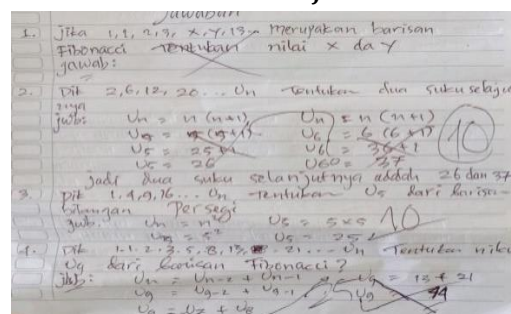 Jawaban
1. Jika 1, 1, 2, 3, x, y, 13 merupakan barisan
Fibonacci tentukan nilai x da y
Jawab:
2. Dit 2, 6, 12, 20 ... Un tentukan dua suku selaju
nnya
jwb: Un = n (n+1) Un = n (n+1)
U5 = (5+1) U6 = 6 (6+1) 10
U5 = 25+1 U6 = 36+1
U5 = 26 U6 = 37
jadi dua suku selanjutnya adalah 26 dan 37
3. Dit 1, 4, 9, 16 ... Un tentukan U5 dari barisa-
bilangan persegi
Jwb. Un = n² U5 = 5x5 10
U5 = 5² U5 = 25
4. Dit 1. 1. 2. 3. 5. 8. 13. 21 ... Un Tentukan nila
U9 dari barisan Fibonacci?
jwb: Un = Un-2 + Un-1 U9 = 13 + 21
U9 = U9-2 + U9-1 U9
U9 = U7 + U8